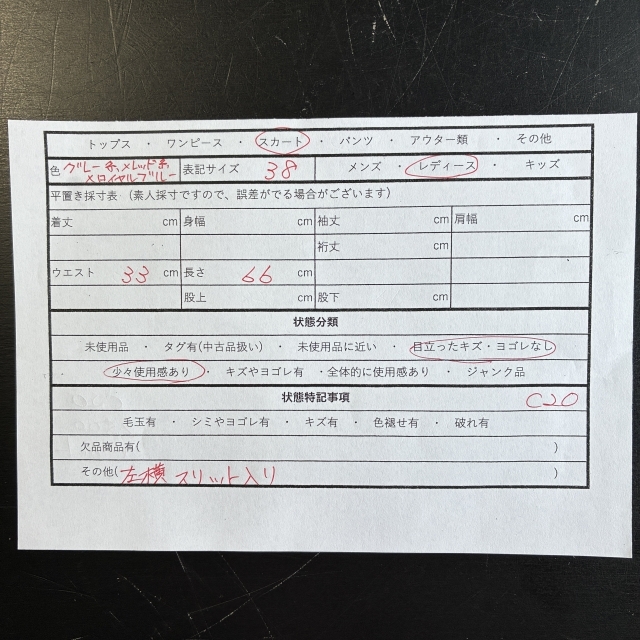 トップス ・ ワンピース ・ スカート ・ パンツ ・ アウター類 ・ その他
色 グレー系×レッド系×ロイヤルブルー 表記サイズ 38 メンズ ・ レディース ・ キッズ
平置き採寸表 (素人採寸ですので、誤差がでる場合がございます)
着丈 cm 身幅 cm 袖丈 cm 肩幅 cm
裄丈 cm
ウエスト 33 cm 長さ 66 cm
股上 cm 股下 cm
状態分類
未使用品 ・ タグ有(中古品扱い) ・ 未使用品に近い ・ 目立ったキズ・ヨゴレなし
少々使用感あり ・ キズやヨゴレ有 ・全体的に使用感あり ・ ジャンク品
状態特記事項 C20
毛玉有 ・ シミやヨゴレ有 ・ キズ有 ・ 色褪せ有 ・ 破れ有
欠品商品有( )
その他(左横 スリット入り )